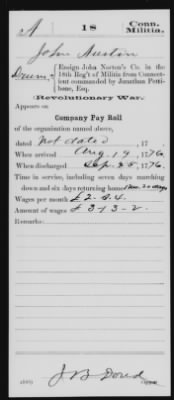 A 18 Conn. Militia.
John Austin
Drum
Ensign John Norton's Co. in the
18th Reg't of Militia from Connect-
icut commanded by Jonathan Petti-
bone, Esq.
Revolutionary War.
Appears on
Company Pay Roll
of the organization named above,
dated Not dated, 17
When arrived Aug. 19, 1776.
When discharged Sep. 25, 1776.
Time in service, including seven days marching
down and six days returning home 1 mo. 20 days
Wages per month £2..4.
Amount of wages £3-13-2.
Remarks:
J B Doud
Copyist.